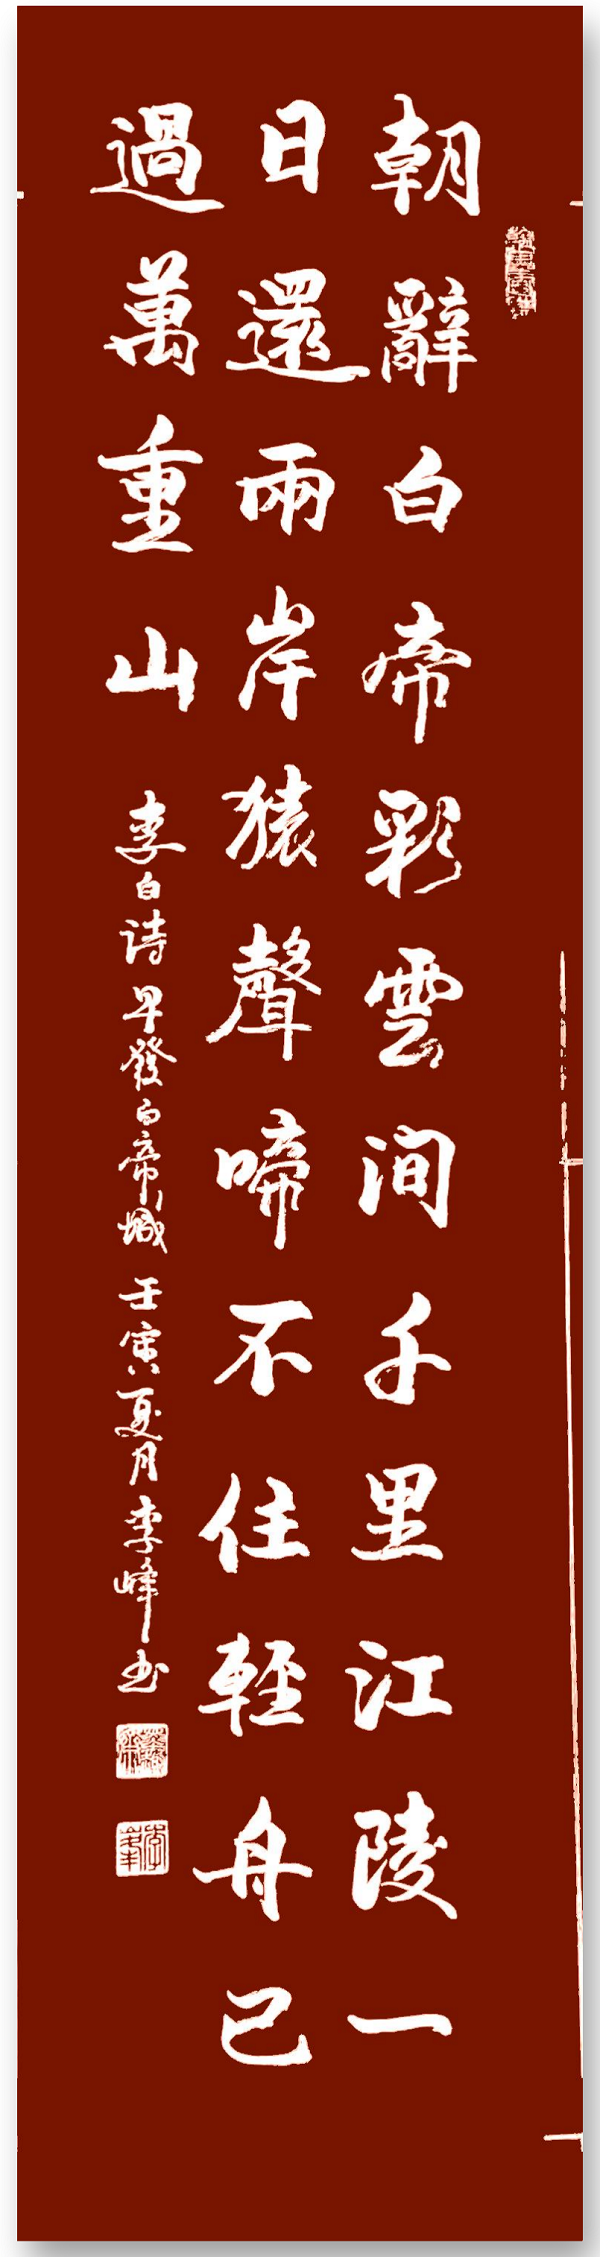 朝辭白帝彩雲澗千里江陵一
日還兩岸猿聲啼不住輕舟已
過萬重山
李白诗早發白帝城壬寅夏月李峰书